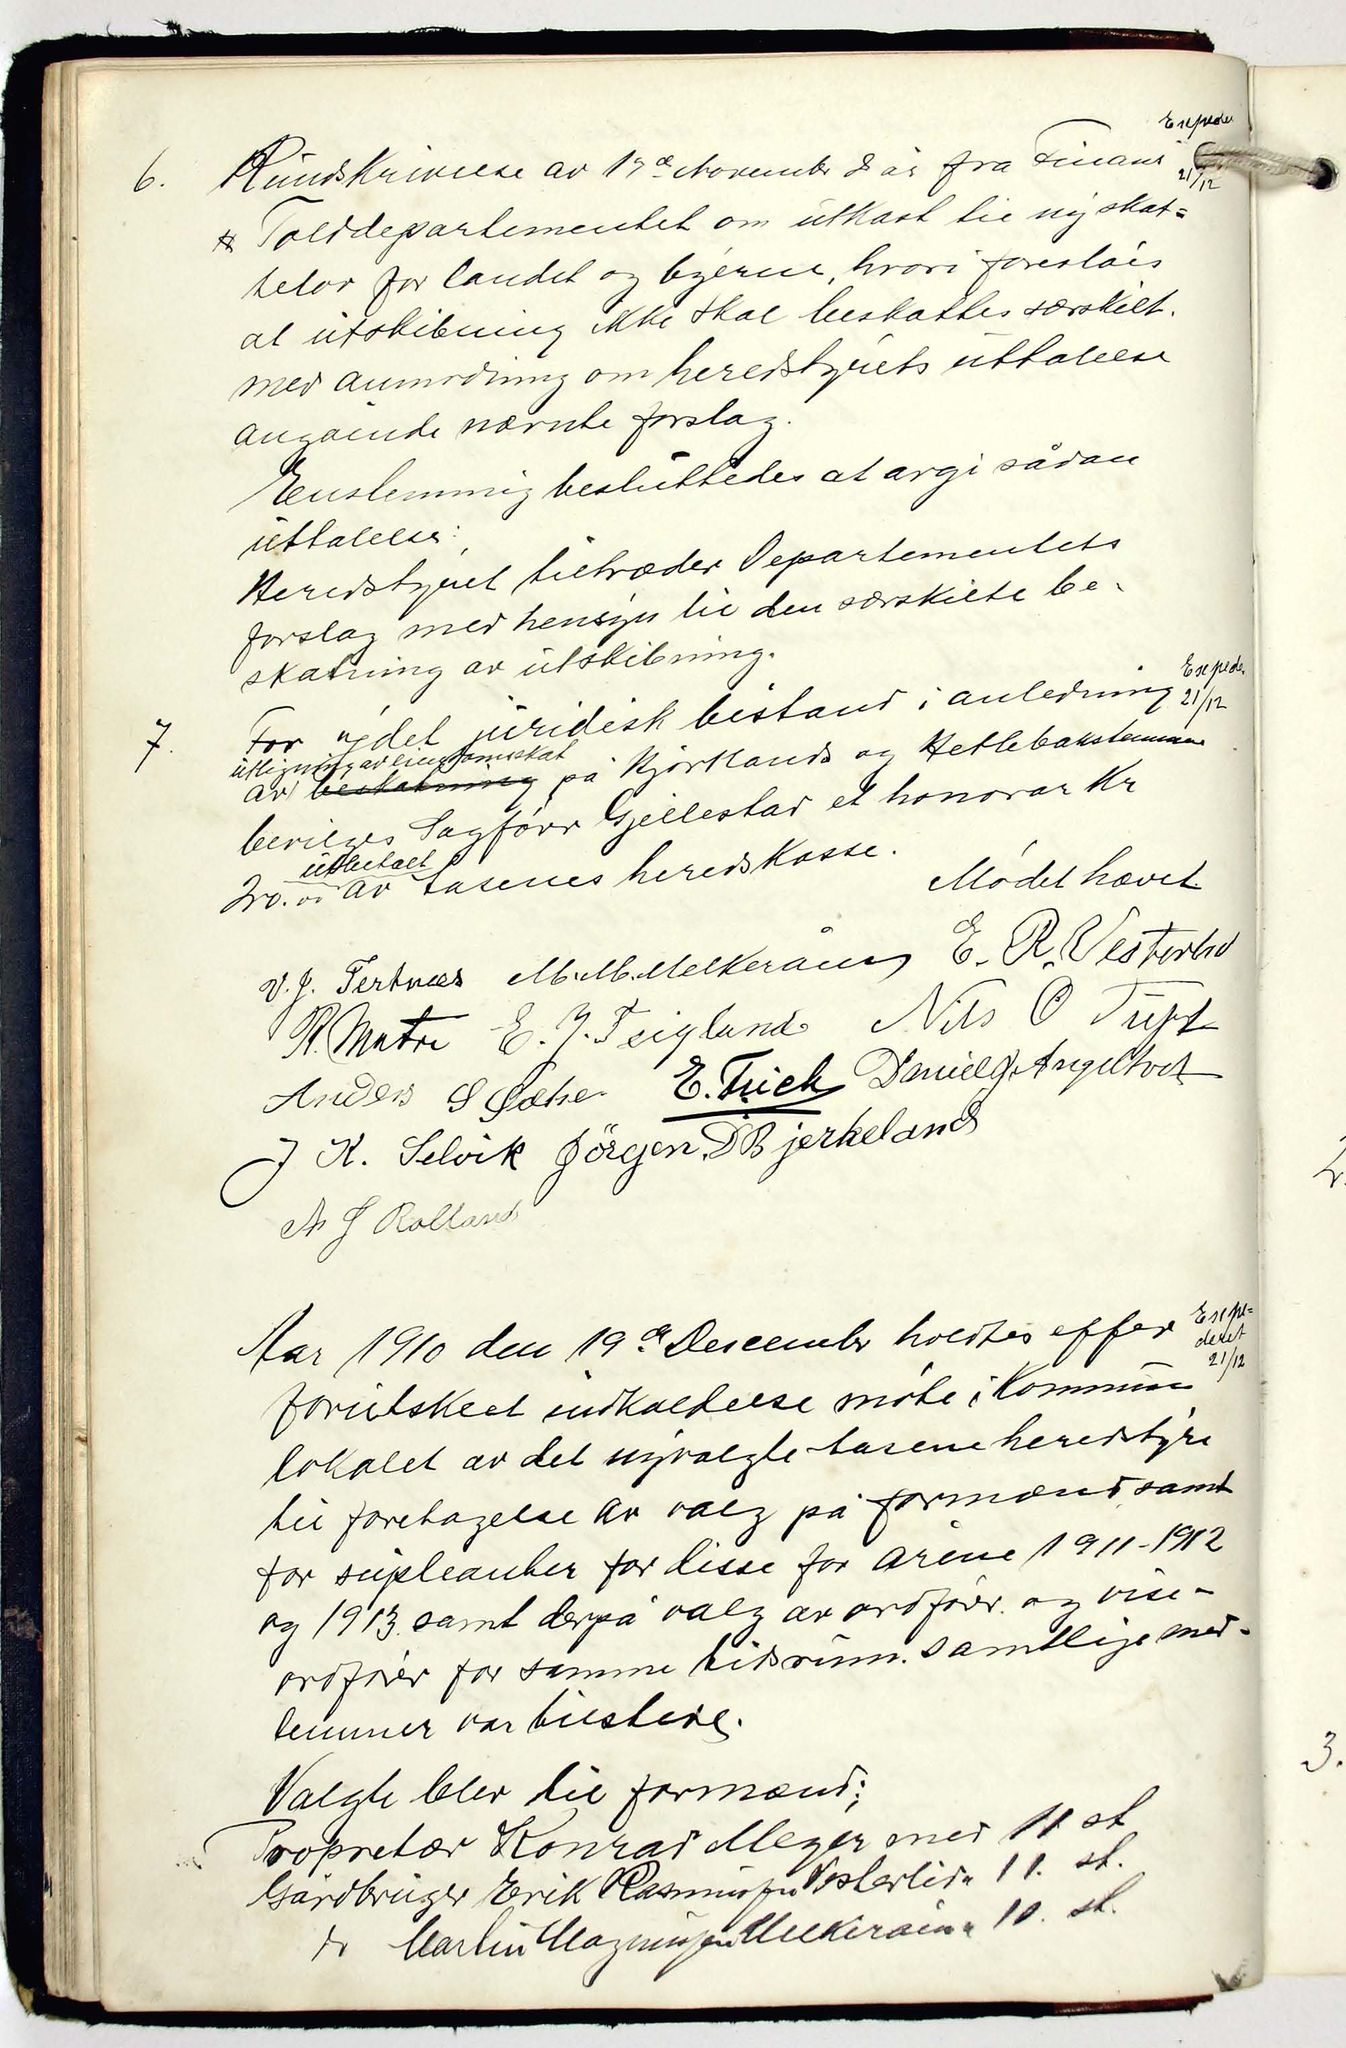 Exspeder
21/12
6. Rundskrivelse av 19de November d år fra Finans
& Tolddepartementet om utkast til ny skat=
telov for landet og byerne, hvori foreslåes
at utskibning ikke skal beskattes særskilt.
med anmodning om heredstyrets uttalelse
angående nævnte forslag.
Enstemmig besluttedes at avgi sådan
uttalelse:
Heredstyret tiltræder Departementets
forslag med hensyn til den særskilte be-
skatning av utskibning.
Exspeder
21/12
7. For ydet juridisk bistand i anledning
utligning av eiendomsskat
av beskatning på Kjørlands og Hetlebakstemmene
bevilges Sagfører Gjellestad et honorar Kr
utbetalt
20.00 av Aasenes heredskasse.
Mødet hævet.
V. J. Tertnæs M. M. Melkeråen E. R. Vesterlid
R. Matre E. J. Teigland Nils O Tuft
Anders S Sæthe E. Frich Daniel G. Angeltveit
J K. Selvik Jörgen D Bjerkeland
A J Rolland
Exspe=
deret
21/12
Aar 1910 den 19de Descember holdtes efter
forutskeet indkaldelse møte i Kommune
lokalet av det nyvalgte Aasene heredstyre
til foretagelse av valg på formænd, samt
for supleanter for disse for årene 1911-1912
og 1913. samt derpå valg av ordfører og vise-
ordfører for samme tidsrum. Samtlige med-
lemmer var tilstede.
Valgte blev til formænd;
Propretær Konrad Meyer med 11 st
Gårdbruger Erik Rasmussen Vesterlid " 11. st.
do Martin Magnussen Melkeråen " 10. st.
2.
3.